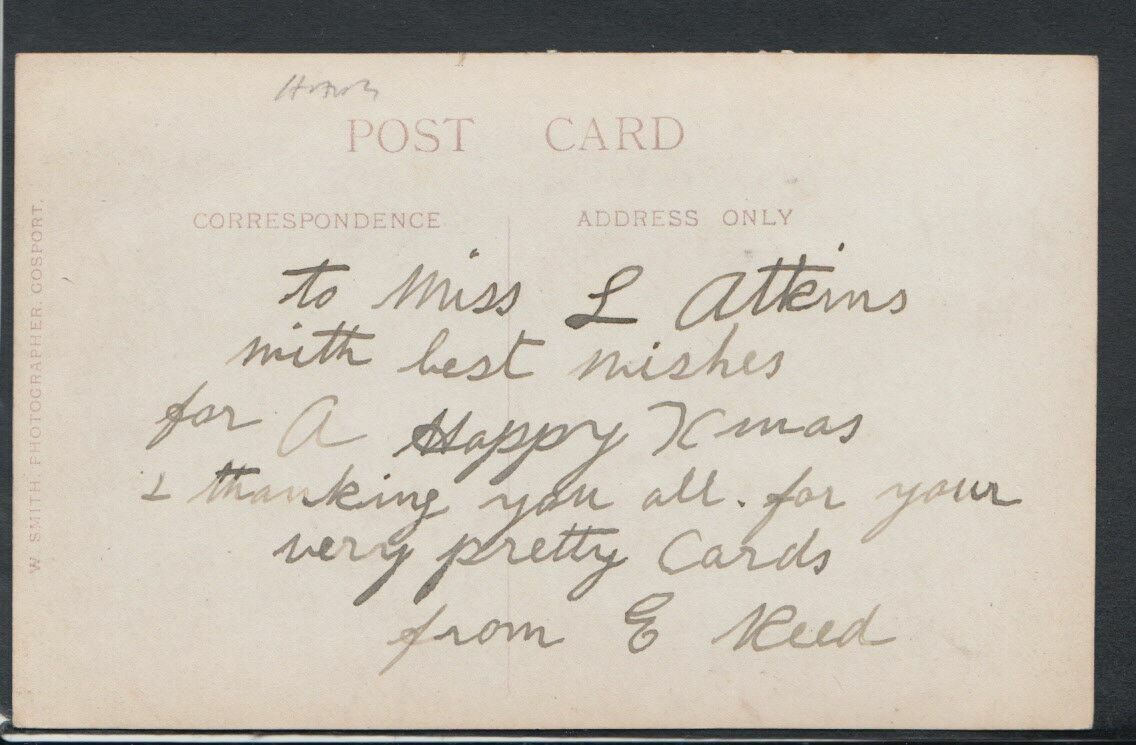 POST CARD
CORRESPONDENCE
ADDRESS ONLY
W. SMITH, PHOTOGRAPHER, GOSPORT.
to Miss L Atkins
with best wishes
for A Happy Xmas
& thanking you all. for your
very pretty Cards
from E Reed